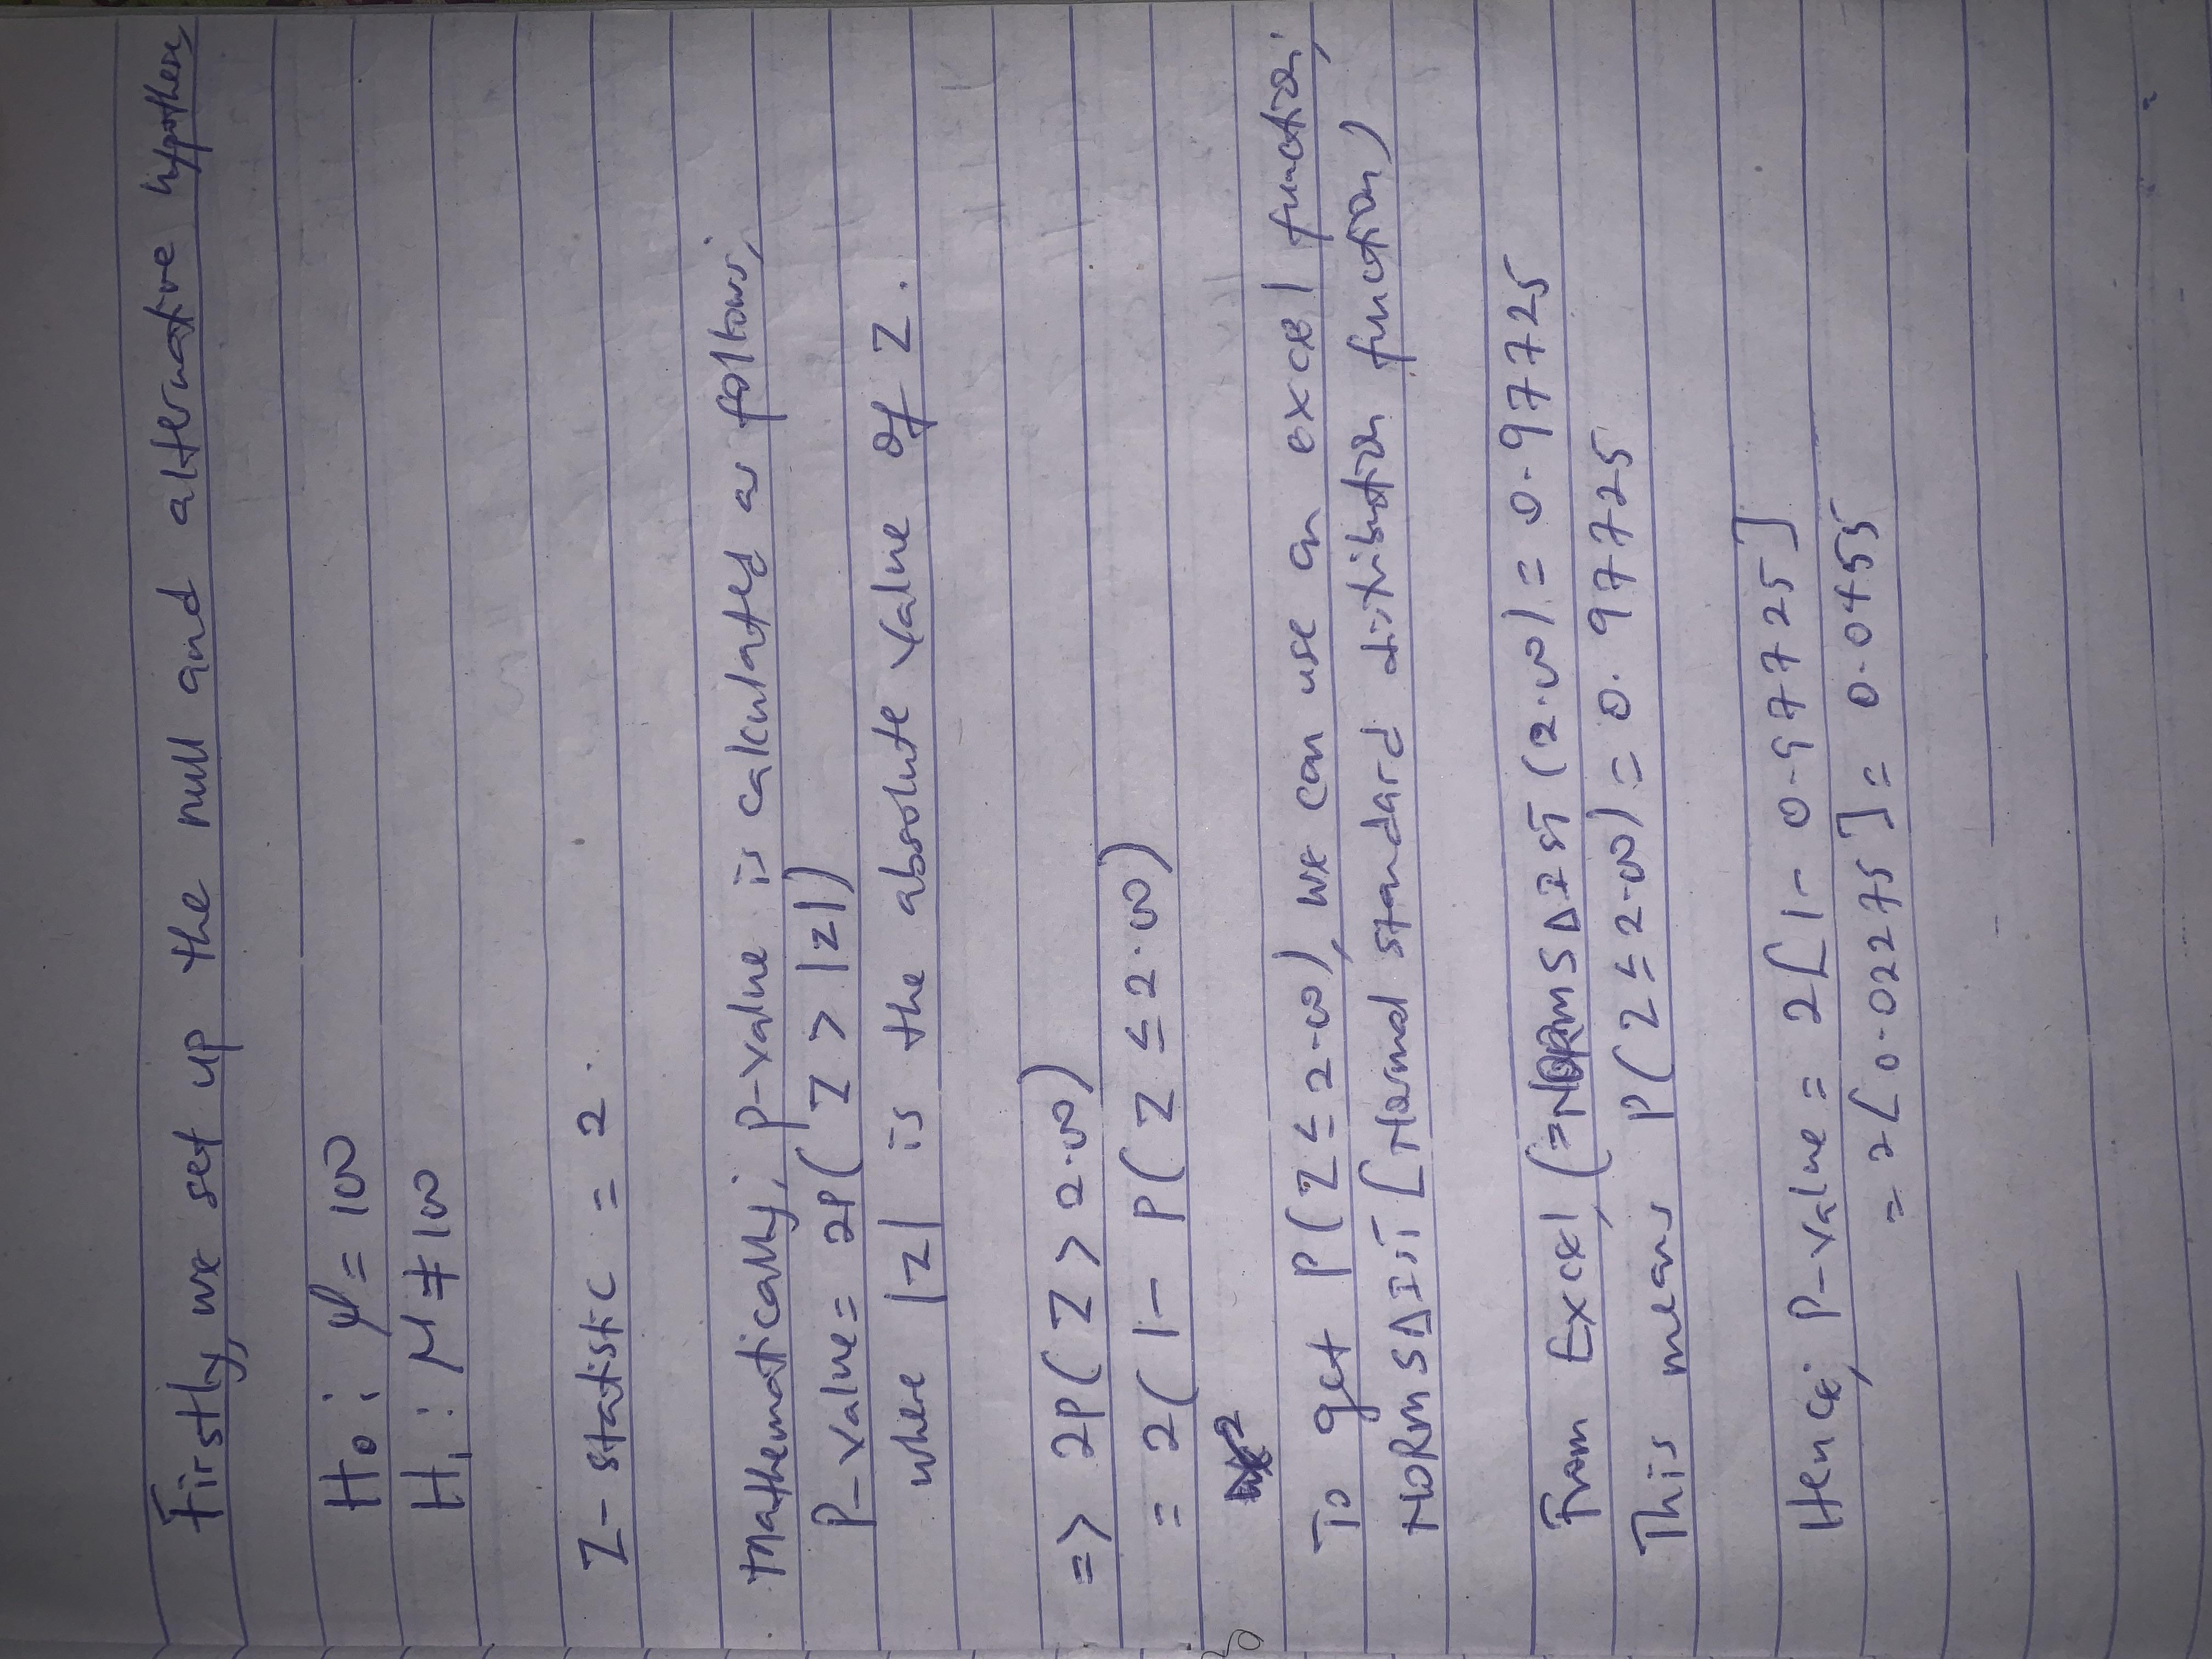 Firstly, we set up the null and alternative hypotheses
H0: μ = 100
H1: μ ≠ 100
Z-statistic = 2.
Mathematically; p-value is calculated as follows;
P-value = 2P(Z > |z|)
where |z| is the absolute value of Z.
=> 2P(Z > 2.00)
= 2(1 - P(Z ≤ 2.00)
To get P(Z ≤ 2.00), we can use an excel function;
NORMSDIST [Normal standard distribution function)
From Excel, (=NORMSDIST (2.00) = 0.97725
This means P(Z ≤ 2.00) = 0.97725
Hence; P-value = 2[1 - 0.97725]
= 2[0.02275] = 0.0455